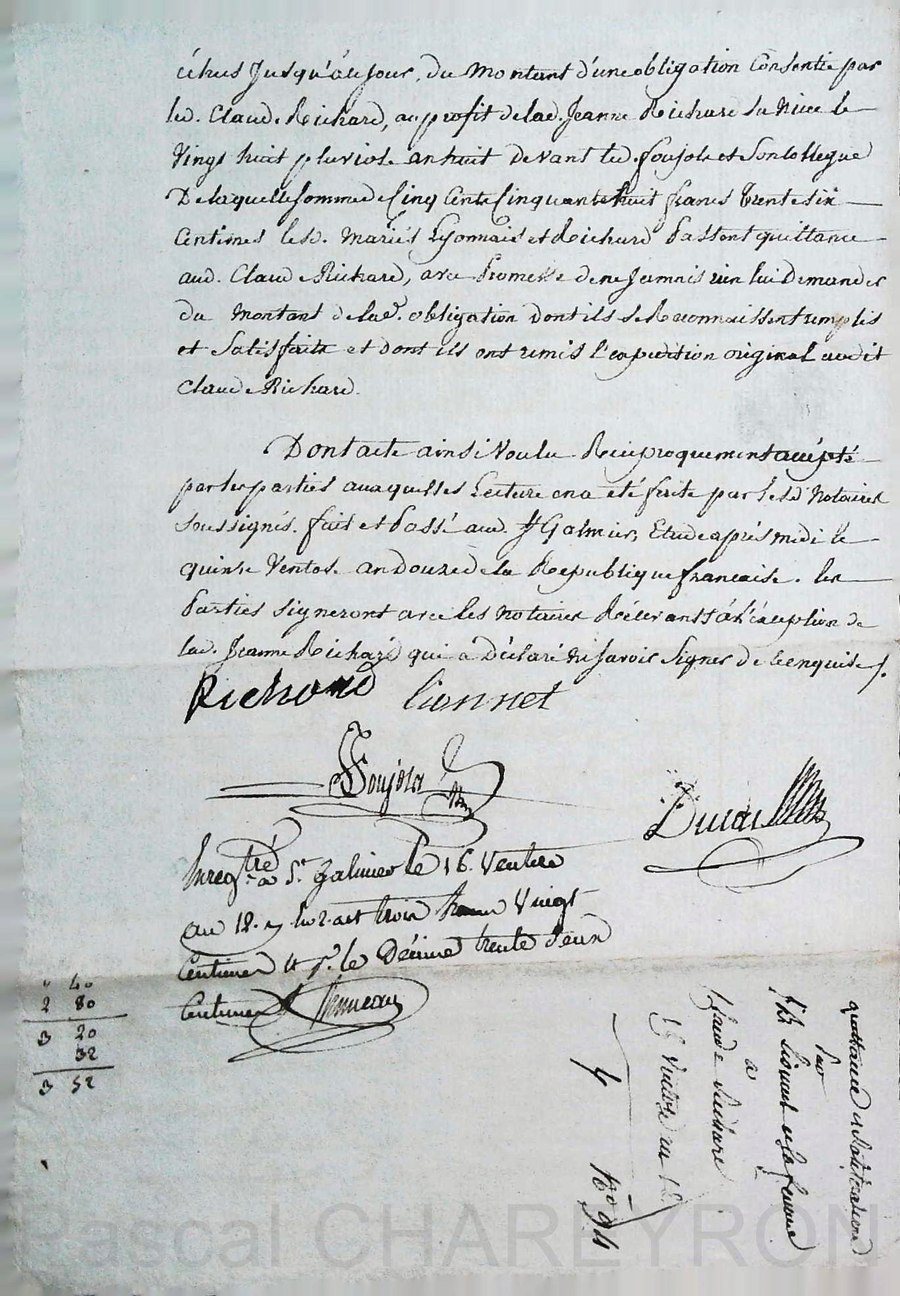 échus Jusqu'à ce Jour, du montant d'une obligation Consentie par
led. Claude Richard, au profit de lad. Jeanne Richard Sa Niece le
Vingt huit pluviose an huit devant led. foujols et Son Collegue
De laquelle Somme de Cinq Cent Cinquante huit francs trente Six
Centimes lesd. Mariés Lyonnais et Richard Passent quittance
aud. Claude Richard, avec Promesse de ne Jamais rien lui Demander
du Montant de lad. obligation Dont ils Se Reconnaissent remplis
et Satisfaits et dont ils ont remis l'expedition original audit
Claude Richard.
Dont acte ainsi Voulu Reciproquement accépté
par les parties auxquelles Lecture en a été faite par les d. Notaires
Soussignés. fait et Passé aud. St Galmier, Etude après midi le
quinse Ventose an Douze de la République francaise. les
Parties Signeront avec les notaires Récevants à l'éxception de
lad. Jeanne Richard qui a Déclaré ne Savoir Signer de ce enquise /.
Richard lionnet
Foujols
Enregtré à St galmier le 16. Ventose
an 12. trois francs Vingt
Centimes et pr. le Décime trente deux
Centimes
" 40
2 80
3 20
32
3 52
quittance et Ratification
Par
lionnet et sa femme
a
Claude Richard
15 Ventose an 12
4
No 94
Pascal CHARLEYRON